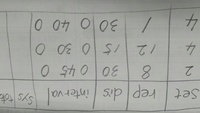 Set rep dis interval Sys
2 8 30 0 45 0
4 12 15 0 30 0
4 1 30 0 40 0